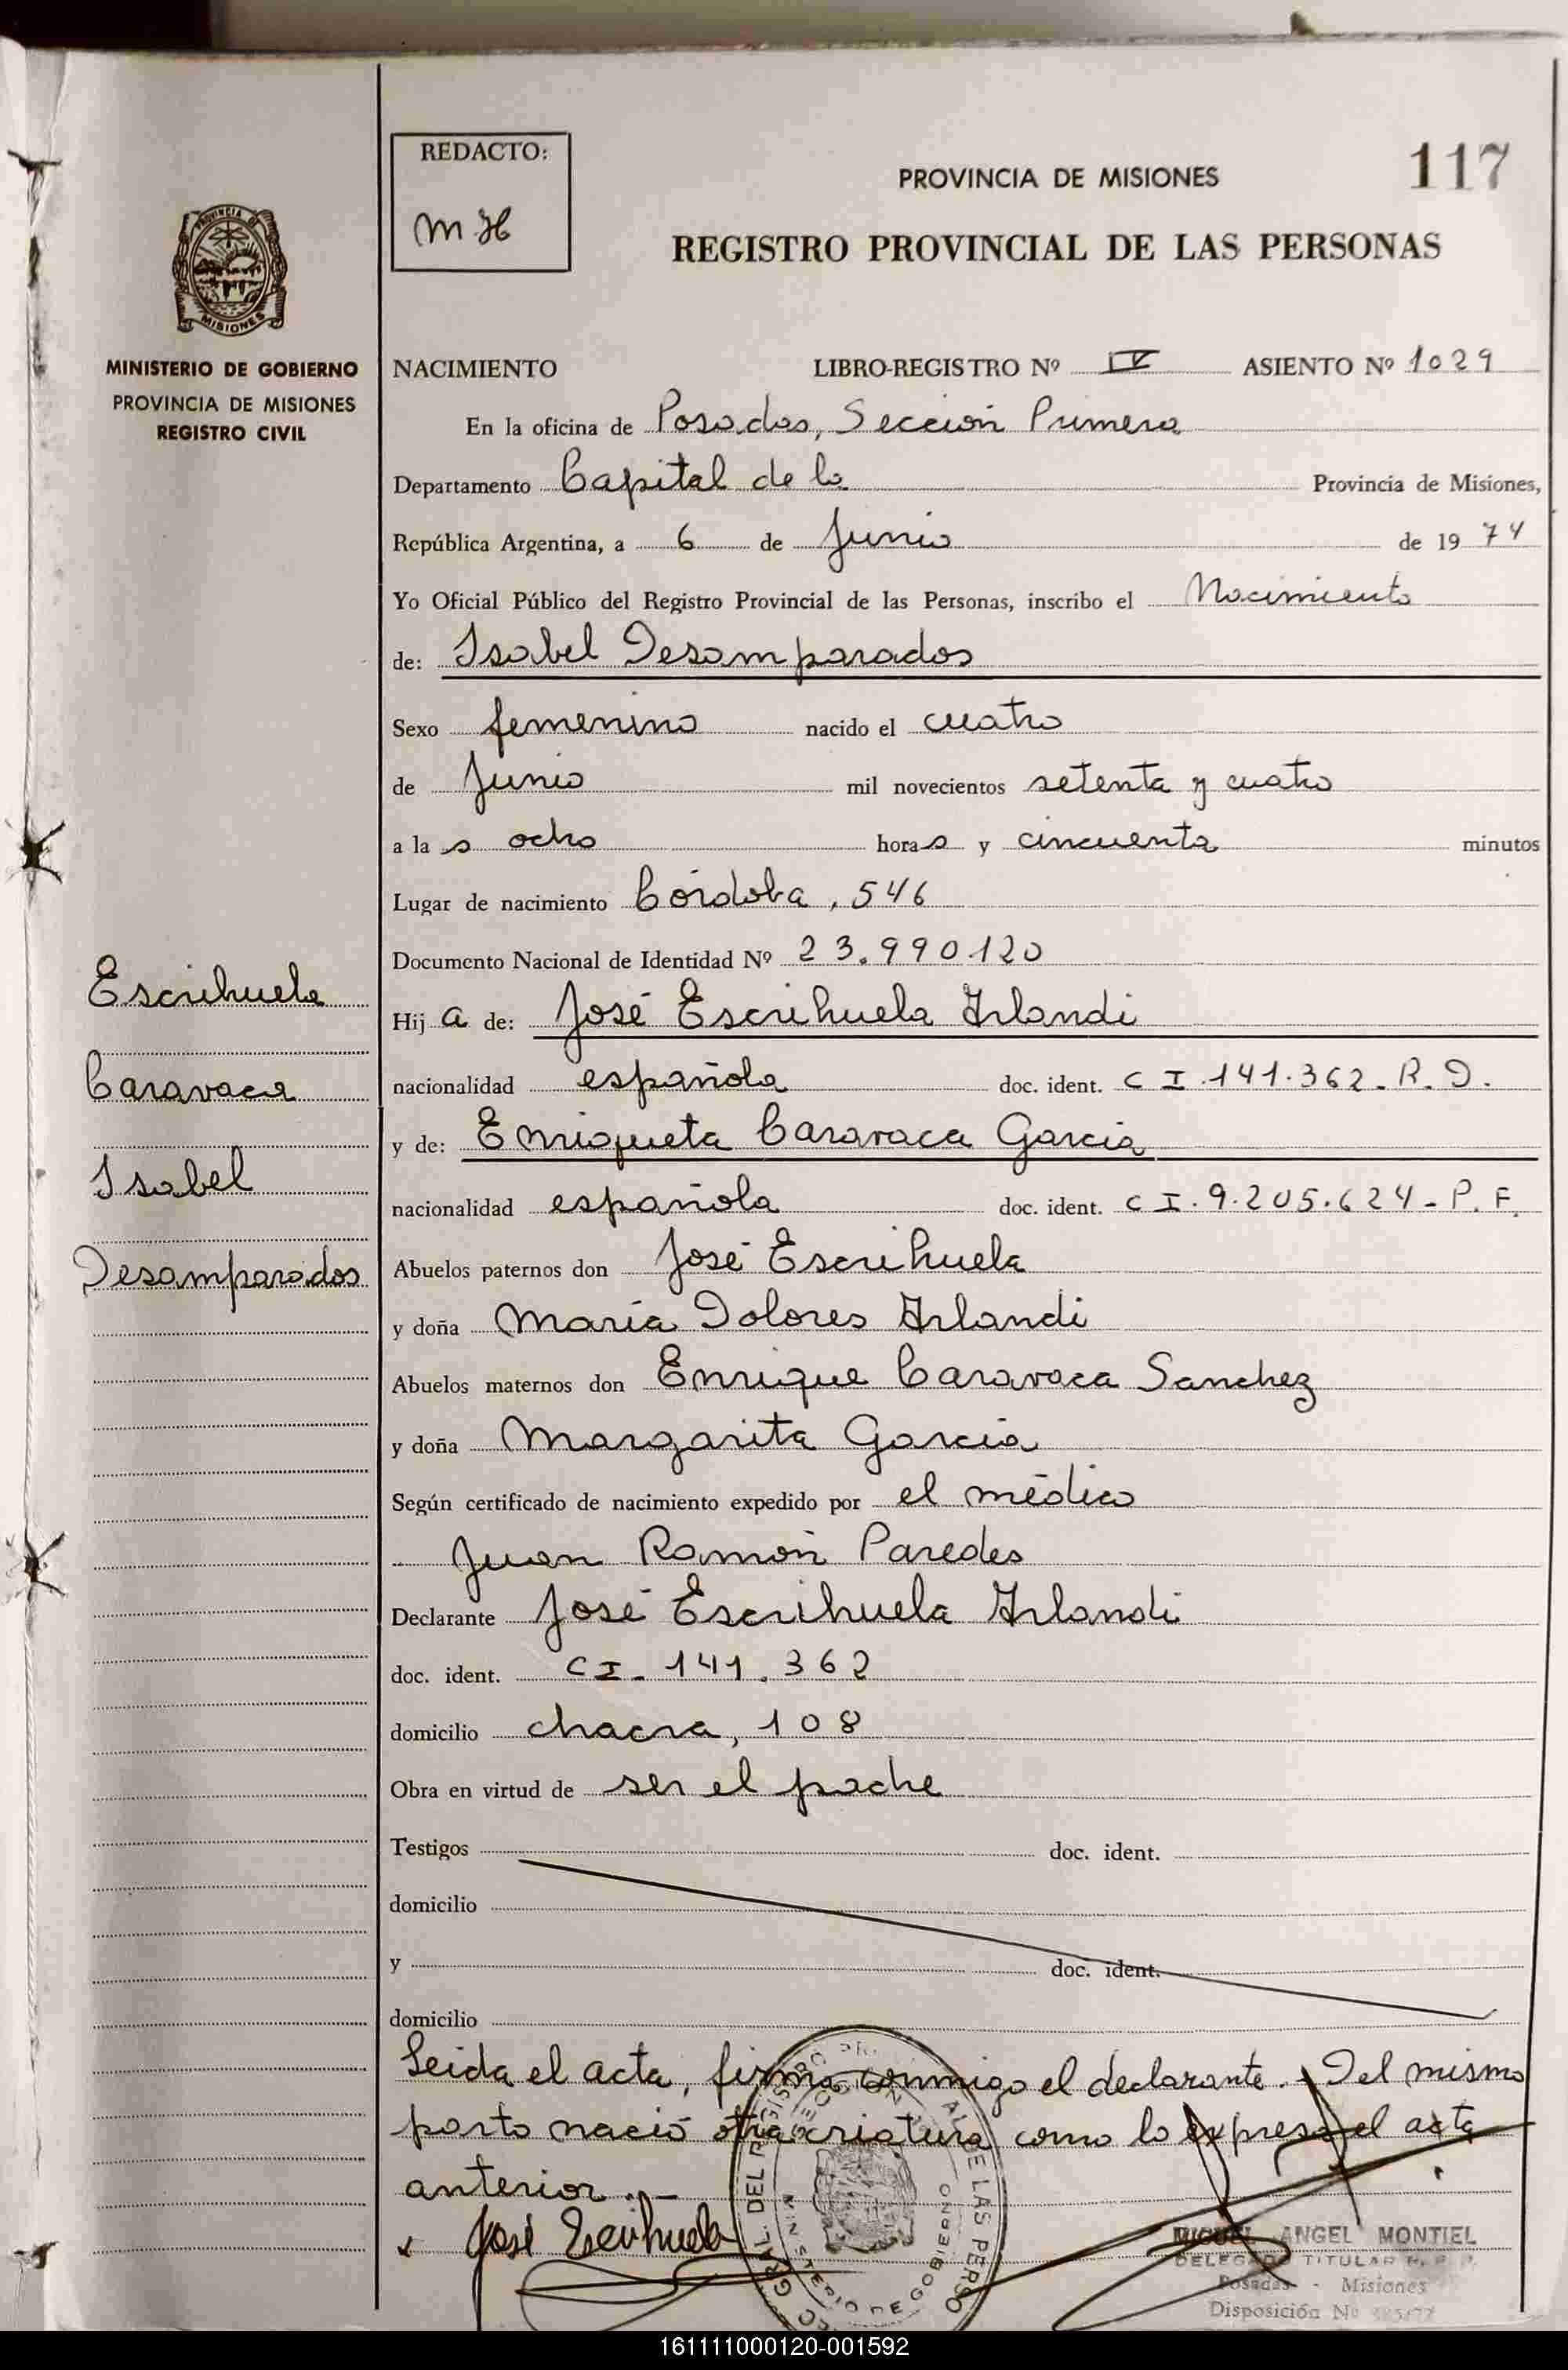 REDACTO:
M H
PROVINCIA DE MISIONES
117
REGISTRO PROVINCIAL DE LAS PERSONAS
PROVINCIA DE
MISIONES
MINISTERIO DE GOBIERNO
PROVINCIA DE MISIONES
REGISTRO CIVIL
NACIMIENTO LIBRO-REGISTRO Nº IV ASIENTO Nº 1029
En la oficina de Posadas, Sección Primera
Departamento Capital de la Provincia de Misiones,
República Argentina, a 6 de Junio de 1974
Yo Oficial Público del Registro Provincial de las Personas, inscribo el Nacimiento
de: Isabel Desamparados
Sexo femenino nacido el cuatro
de Junio mil novecientos setenta y cuatro
a la s ocho hora s y cincuenta minutos
Lugar de nacimiento Córdoba, 546
Documento Nacional de Identidad Nº 23.990.120
Escrihuela
Caravaca
Isabel
Desamparados
Hij a de: José Escrihuela Arlandi
nacionalidad española doc. ident. C I.141.362-R.D.
y de: Enriqueta Caravaca García
nacionalidad española doc. ident. C I.9.205.624-P.F.
Abuelos paternos don José Escrihuela
y doña María Dolores Arlandi
Abuelos maternos don Enrique Caravaca Sanchez
y doña Margarita García
Según certificado de nacimiento expedido por el médico
Juan Ramón Paredes
Declarante José Escrihuela Arlandi
doc. ident. CI-141.362
domicilio chacra, 108
Obra en virtud de ser el padre
Testigos doc. ident.
domicilio
y doc. ident.
domicilio
Leida el acta, firma conmigo el declarante. Del mismo
parto nació otra criatura como lo expresa el acta
anterior.-
x José Escrihuela
MINISTERIO DE GOBIERNO
MIGUEL ANGEL MONTIEL
DELEGADO TITULAR R. P. P.
Posadas - Misiones
Disposición Nº
161111000120-001592